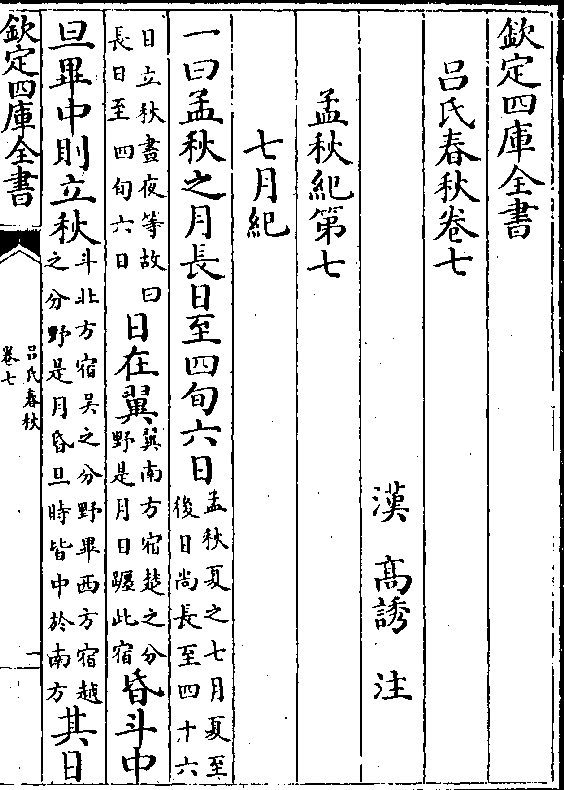 欽定四庫全書
呂氏春秋卷七
漢 高誘 注
孟秋紀第七
七月紀
一曰孟秋之月長日至四旬六日孟秋夏之七月夏至後日尚長至四十六
日立秋晝夜等故曰長日至四旬六日日在翼翼南方宿楚之分野是月日躔此宿昏斗中
旦畢中則立秋斗北方宿吳之分野畢西方宿趙之分野是月昏旦時皆中於南方其日
欽定四庫全書
呂氏春秋
卷七
一